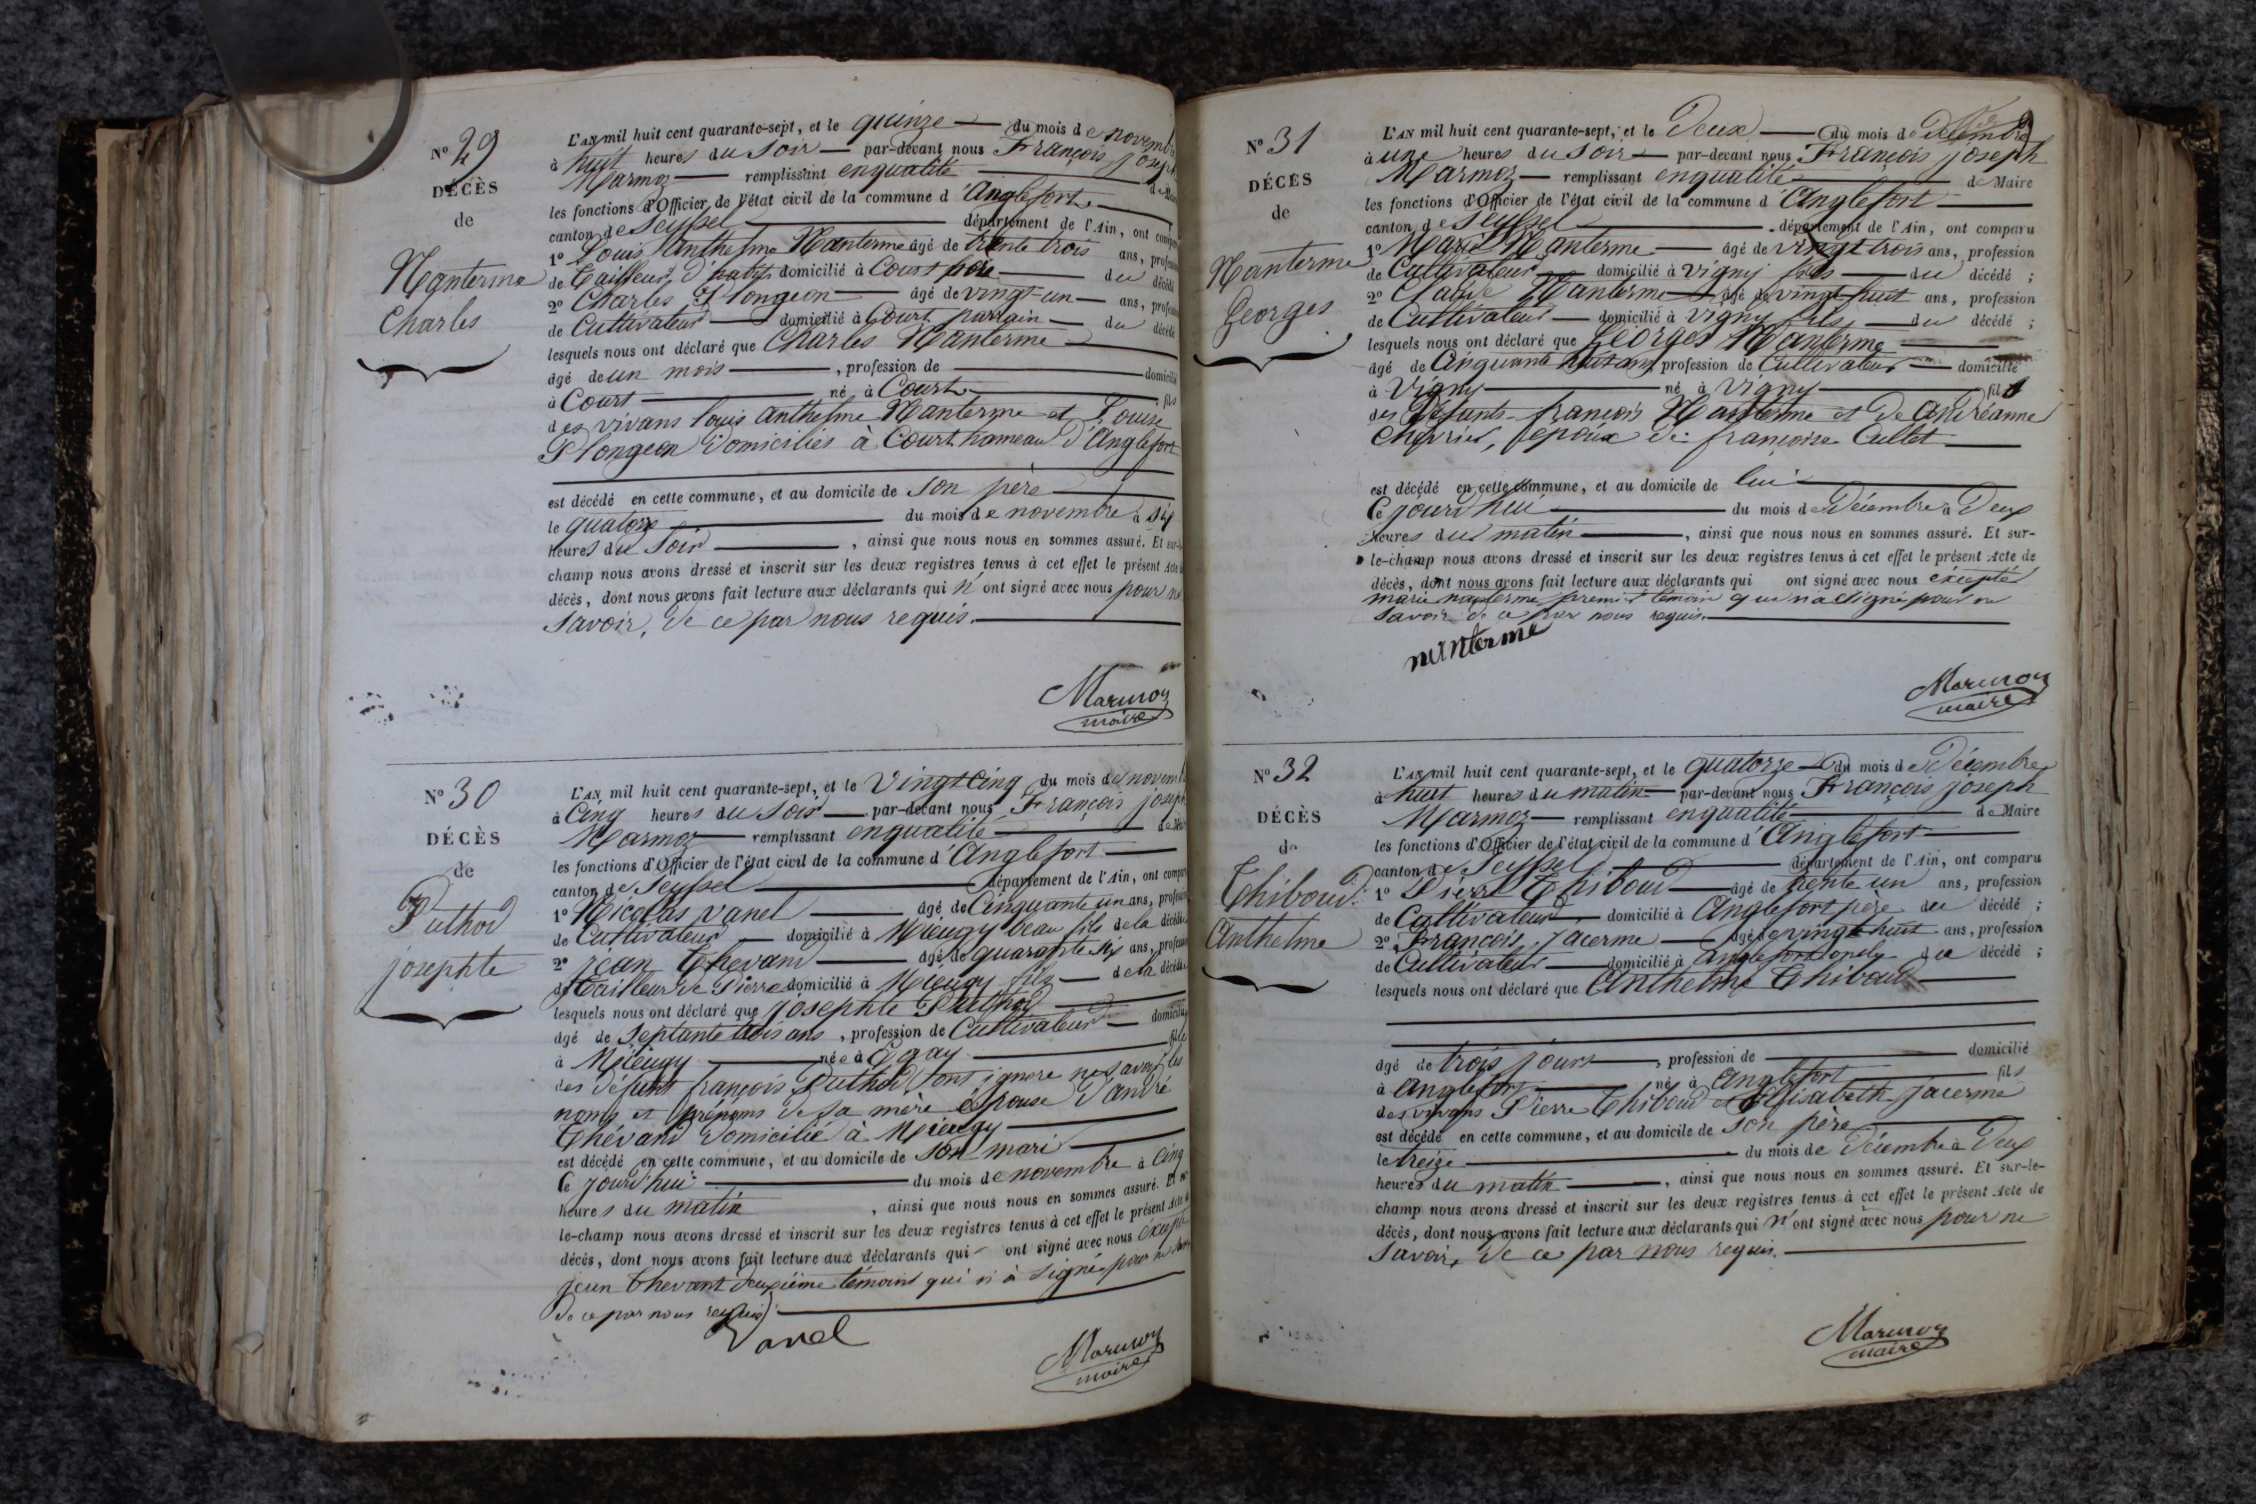 N° 29
DÉCÈS
de
Nanterme
Charles
L'AN mil huit cent quarante-sept, et le quinze du mois de novembre
à huit heures du soir par-devant nous François joseph
Marmoz remplissant en qualité de Maire
les fonctions d'Officier de l'état civil de la commune d'Anglefort
canton de Seyssel département de l'Ain, ont comparu
1° Louis Anthelme Nanterme âgé de trente trois ans, profession
de Tailleur d'habits domicilié à Court père du décédé
2° Charles Plongeon âgé de vingt-un ans, profession
de Cultivateur domicilié à Court parrain du décédé
lesquels nous ont déclaré que Charles Nanterme
âgé de un mois, profession de domicilié
à Court né à Court fils
des vivans louis anthelme Nanterme et Louise
Plongeon Domiciliés à Court hameau d'Anglefort
est décédé en cette commune, et au domicile de son père
le quatorze du mois de novembre à six
heures du soir, ainsi que nous nous en sommes assuré. Et sur-le-
champ nous avons dressé et inscrit sur les deux registres tenus à cet effet le présent Acte de
décès, dont nous avons fait lecture aux déclarants qui n'ont signé avec nous pour ne
savoir, de ce par nous requis.
Marmoz
maire
N° 30
DÉCÈS
de
Puthod
josephte
L'AN mil huit cent quarante-sept, et le vingt cinq du mois de novembre
à Cinq heures du soir par-devant nous François joseph
Marmoz remplissant en qualité de Maire
les fonctions d'Officier de l'état civil de la commune d'Anglefort
canton de Seyssel département de l'Ain, ont comparu
1° Nicolas vanel âgé de Cinquante un ans, profession
de Cultivateur domicilié à Mieugy beau fils de la décédée
2° jean Thevand âgé de quarante six ans, profession
de Tailleur de Pierre domicilié à Mieugy fils de la décédée
lesquels nous ont déclaré que josephte Puthod
âgé de septante trois ans, profession de Cultivateur domicilié
à Mieugy née à fille
des défunt françois Puthod
noms et prénoms de sa mère épouse d'andré
Thévand domicilié à Mieugy
est décédé en cette commune, et au domicile de son mari
Ce jourd'hui du mois de novembre à cinq
heures du matin, ainsi que nous nous en sommes assuré. Et sur-
le-champ nous avons dressé et inscrit sur les deux registres tenus à cet effet le présent Acte de
décès, dont nous avons fait lecture aux déclarants qui ont signé avec nous excepté
jean thevant deuxiéme témoins qui n'a signé pour ne savoir
de ce par nous requis
Vanel
Marmoz
maire
N° 31
DÉCÈS
de
Nanterme
Georges
L'AN mil huit cent quarante-sept, et le Deux du mois de Décembre
à une heures du soir par-devant nous François joseph
Marmoz remplissant en qualité de Maire
les fonctions d'Officier de l'état civil de la commune d'Anglefort
canton de Seyssel département de l'Ain, ont comparu
1° Marie Nanterme âgé de vingt trois ans, profession
de Cultivateur domicilié à vigny fils du décédé;
2° Claude Nanterme âgé de vingt huit ans, profession
de Cultivateur domicilié à vigny fils du décédé;
lesquels nous ont déclaré que Georges Nanterme
âgé de Cinquante huit ans, profession de Cultivateur domicilié
à Vigny né à Vigny fils
des Défunts françois Nanterme et de Andréanne
Chevrier, époux de françoise Cullet
est décédé en cette commune, et au domicile de lui
Ce jourd'hui du mois de Décembre à Deux
heures du matin, ainsi que nous nous en sommes assuré. Et sur-
le-champ nous avons dressé et inscrit sur les deux registres tenus à cet effet le présent Acte de
décès, dont nous avons fait lecture aux déclarants qui ont signé avec nous excepté
marie nanterme premier témoin qui n'a signé pour ne
savoir de ce par nous requis.
nanterme
Marmoz
maire
N° 32
DÉCÈS
de
Thiboud
Anthelme
L'AN mil huit cent quarante-sept, et le quatorze du mois de Décembre
à huit heures du matin par-devant nous François joseph
Marmoz remplissant en qualité de Maire
les fonctions d'Officier de l'état civil de la commune d'Anglefort
canton de Seyssel département de l'Ain, ont comparu
1° Pierre Thiboud âgé de trente un ans, profession
de Cultivateur domicilié à Anglefort père du décédé;
2° François Jacerme âgé de vingt huit ans, profession
de Cultivateur domicilié à anglefort oncle du décédé;
lesquels nous ont déclaré que Anthelme Thiboud
âgé de trois jours, profession de domicilié
à Anglefort né à Anglefort fils
des vivans Pierre Thiboud et Elisabeth Jacerme
est décédé en cette commune, et au domicile de son père
le treize du mois de Décembre à Deux
heures du matin, ainsi que nous nous en sommes assuré. Et sur-le-
champ nous avons dressé et inscrit sur les deux registres tenus à cet effet le présent Acte de
décès, dont nous avons fait lecture aux déclarants qui n'ont signé avec nous pour ne
savoir, de ce par nous requis.
Marmoz
maire